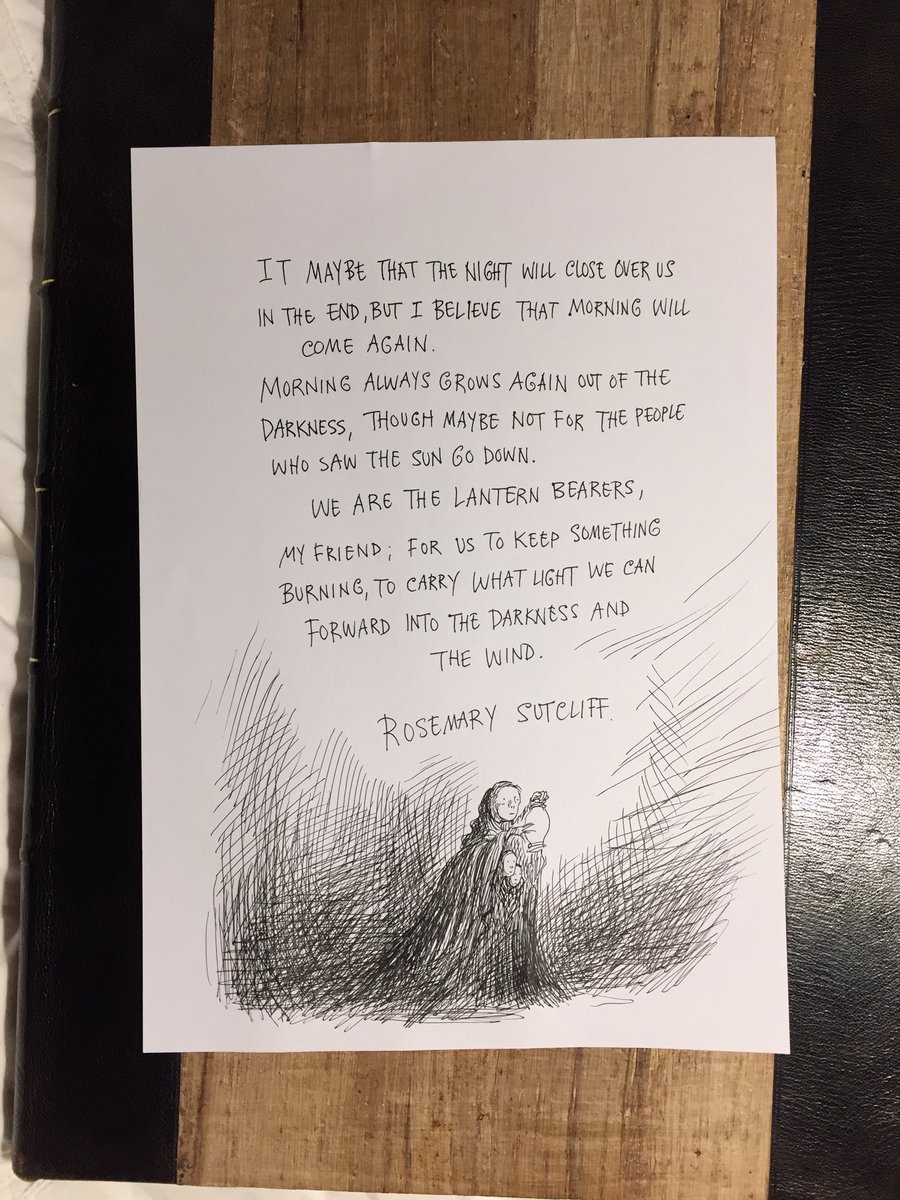 IT MAYBE THAT THE NIGHT WILL CLOSE OVER US
IN THE END, BUT I BELIEVE THAT MORNING WILL
COME AGAIN.
MORNING ALWAYS GROWS AGAIN OUT OF THE
DARKNESS, THOUGH MAYBE NOT FOR THE PEOPLE
WHO SAW THE SUN GO DOWN.
WE ARE THE LANTERN BEARERS,
MY FRIEND; FOR US TO KEEP SOMETHING
BURNING, TO CARRY WHAT LIGHT WE CAN
FORWARD INTO THE DARKNESS AND
THE WIND.
ROSEMARY SUTCLIFF.